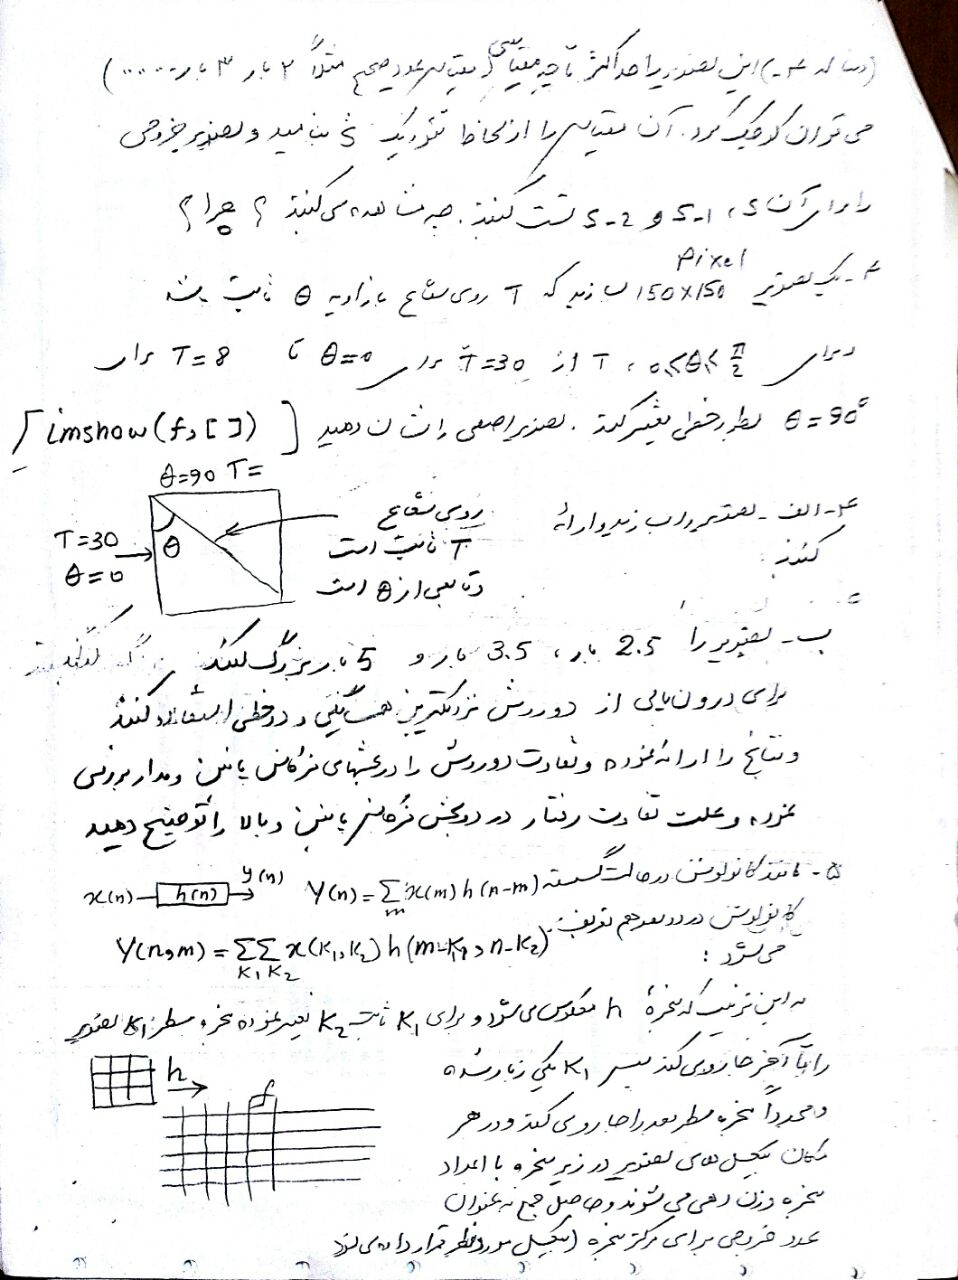 (دنباله ۳-) این تصویر را حداکثر تا چه مقیاسی (مقیاس عدد صحیح مثلاً ۲ بار ۳ بار .....)
می توان کوچک کرد. آن مقیاس را از لحاظ تئوریک S بنامید و تصویر خروجی
را برای آن S ، S-1 و S-2 تست کنید. چه مشاهده می کنید ؟ چرا ؟
۴- یک تصویر 150×150 Pixel بسازید که T روی شعاع با زاویه θ ثابت باشد
و برای 0≤θ≤π/2 ، T از T=30 برای θ=0 تا T=8 برای
θ=90° بطور خطی تغییر کند. تصویر اصلی را نشان دهید [imshow(f,[])]
θ=90 T=
T=30
θ=0
θ
روی شعاع
T ثابت است
و تابعی از θ است
۴-الف- تصویر را بسازید و ارائه
کنید.
ب- تصویر را 2.5 بار ، 3.5 بار و 5 بار بزرگ کنید
برای درون یابی از دو روش نزدیکترین همسایگی و دو خطی استفاده کنید
و نتایج را ارائه نموده و تفاوت دو روش را در بخشهای فرکانس پایین و مدار بررسی
نموده و علت تفاوت رفتار در دو بخش فرکانس پایین و بالا را توضیح دهید
۵- مانند کانولوشن در حالت گسسته Y(n)=∑x(m)h(n-m) m x(n) h(n) y(n)
کانولوشن در دو بعد هم تعریف Y(n,m)=∑∑x(K1,K2)h(m-K1,n-K2) K1 K2
می شود :
به این ترتیب که پنجرۀ h معکوس می شود و برای K1 ثابت K2 تغییر نموده پنجره سطر K1 تصویر
را تا آخر جاروی کند سپس K1 یکی زیاد شده
و مجدداً پنجره سطر بعد را جاروی کند و در هر
مکان پیکسل های تصویر در زیر پنجره با اعداد
پنجره وزن دهی می شوند و حاصل جمع به عنوان
عدد خروجی برای مرکز پنجره (پیکسل مورد نظر قرار داده می شود
h
f